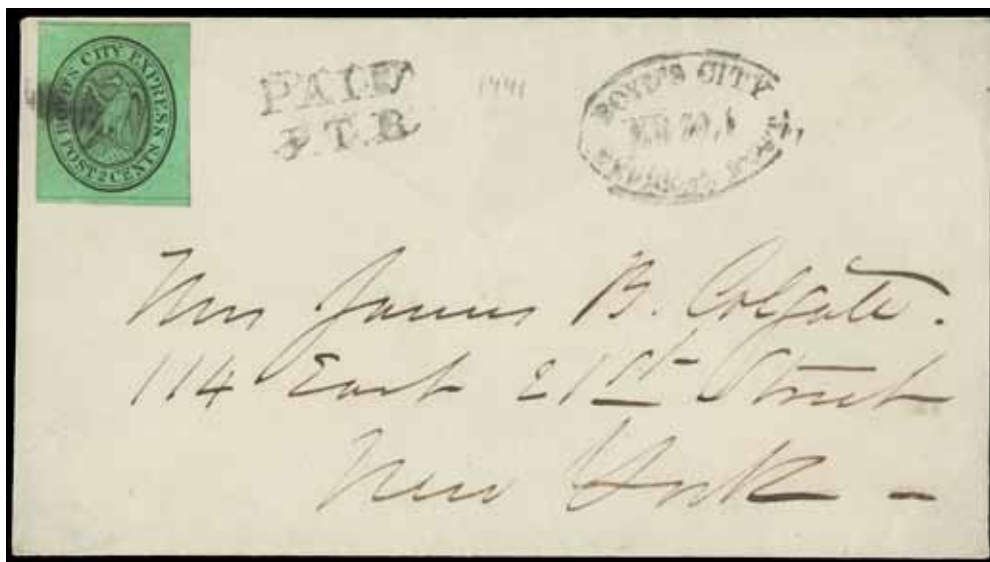 BOYD'S CITY EXPRESS
POST 2 CENTS
PAID
J.T.B.
BOYD'S CITY EXPRESS POST
Mrs James B. Colgate.
114 East 21st Street
New York -